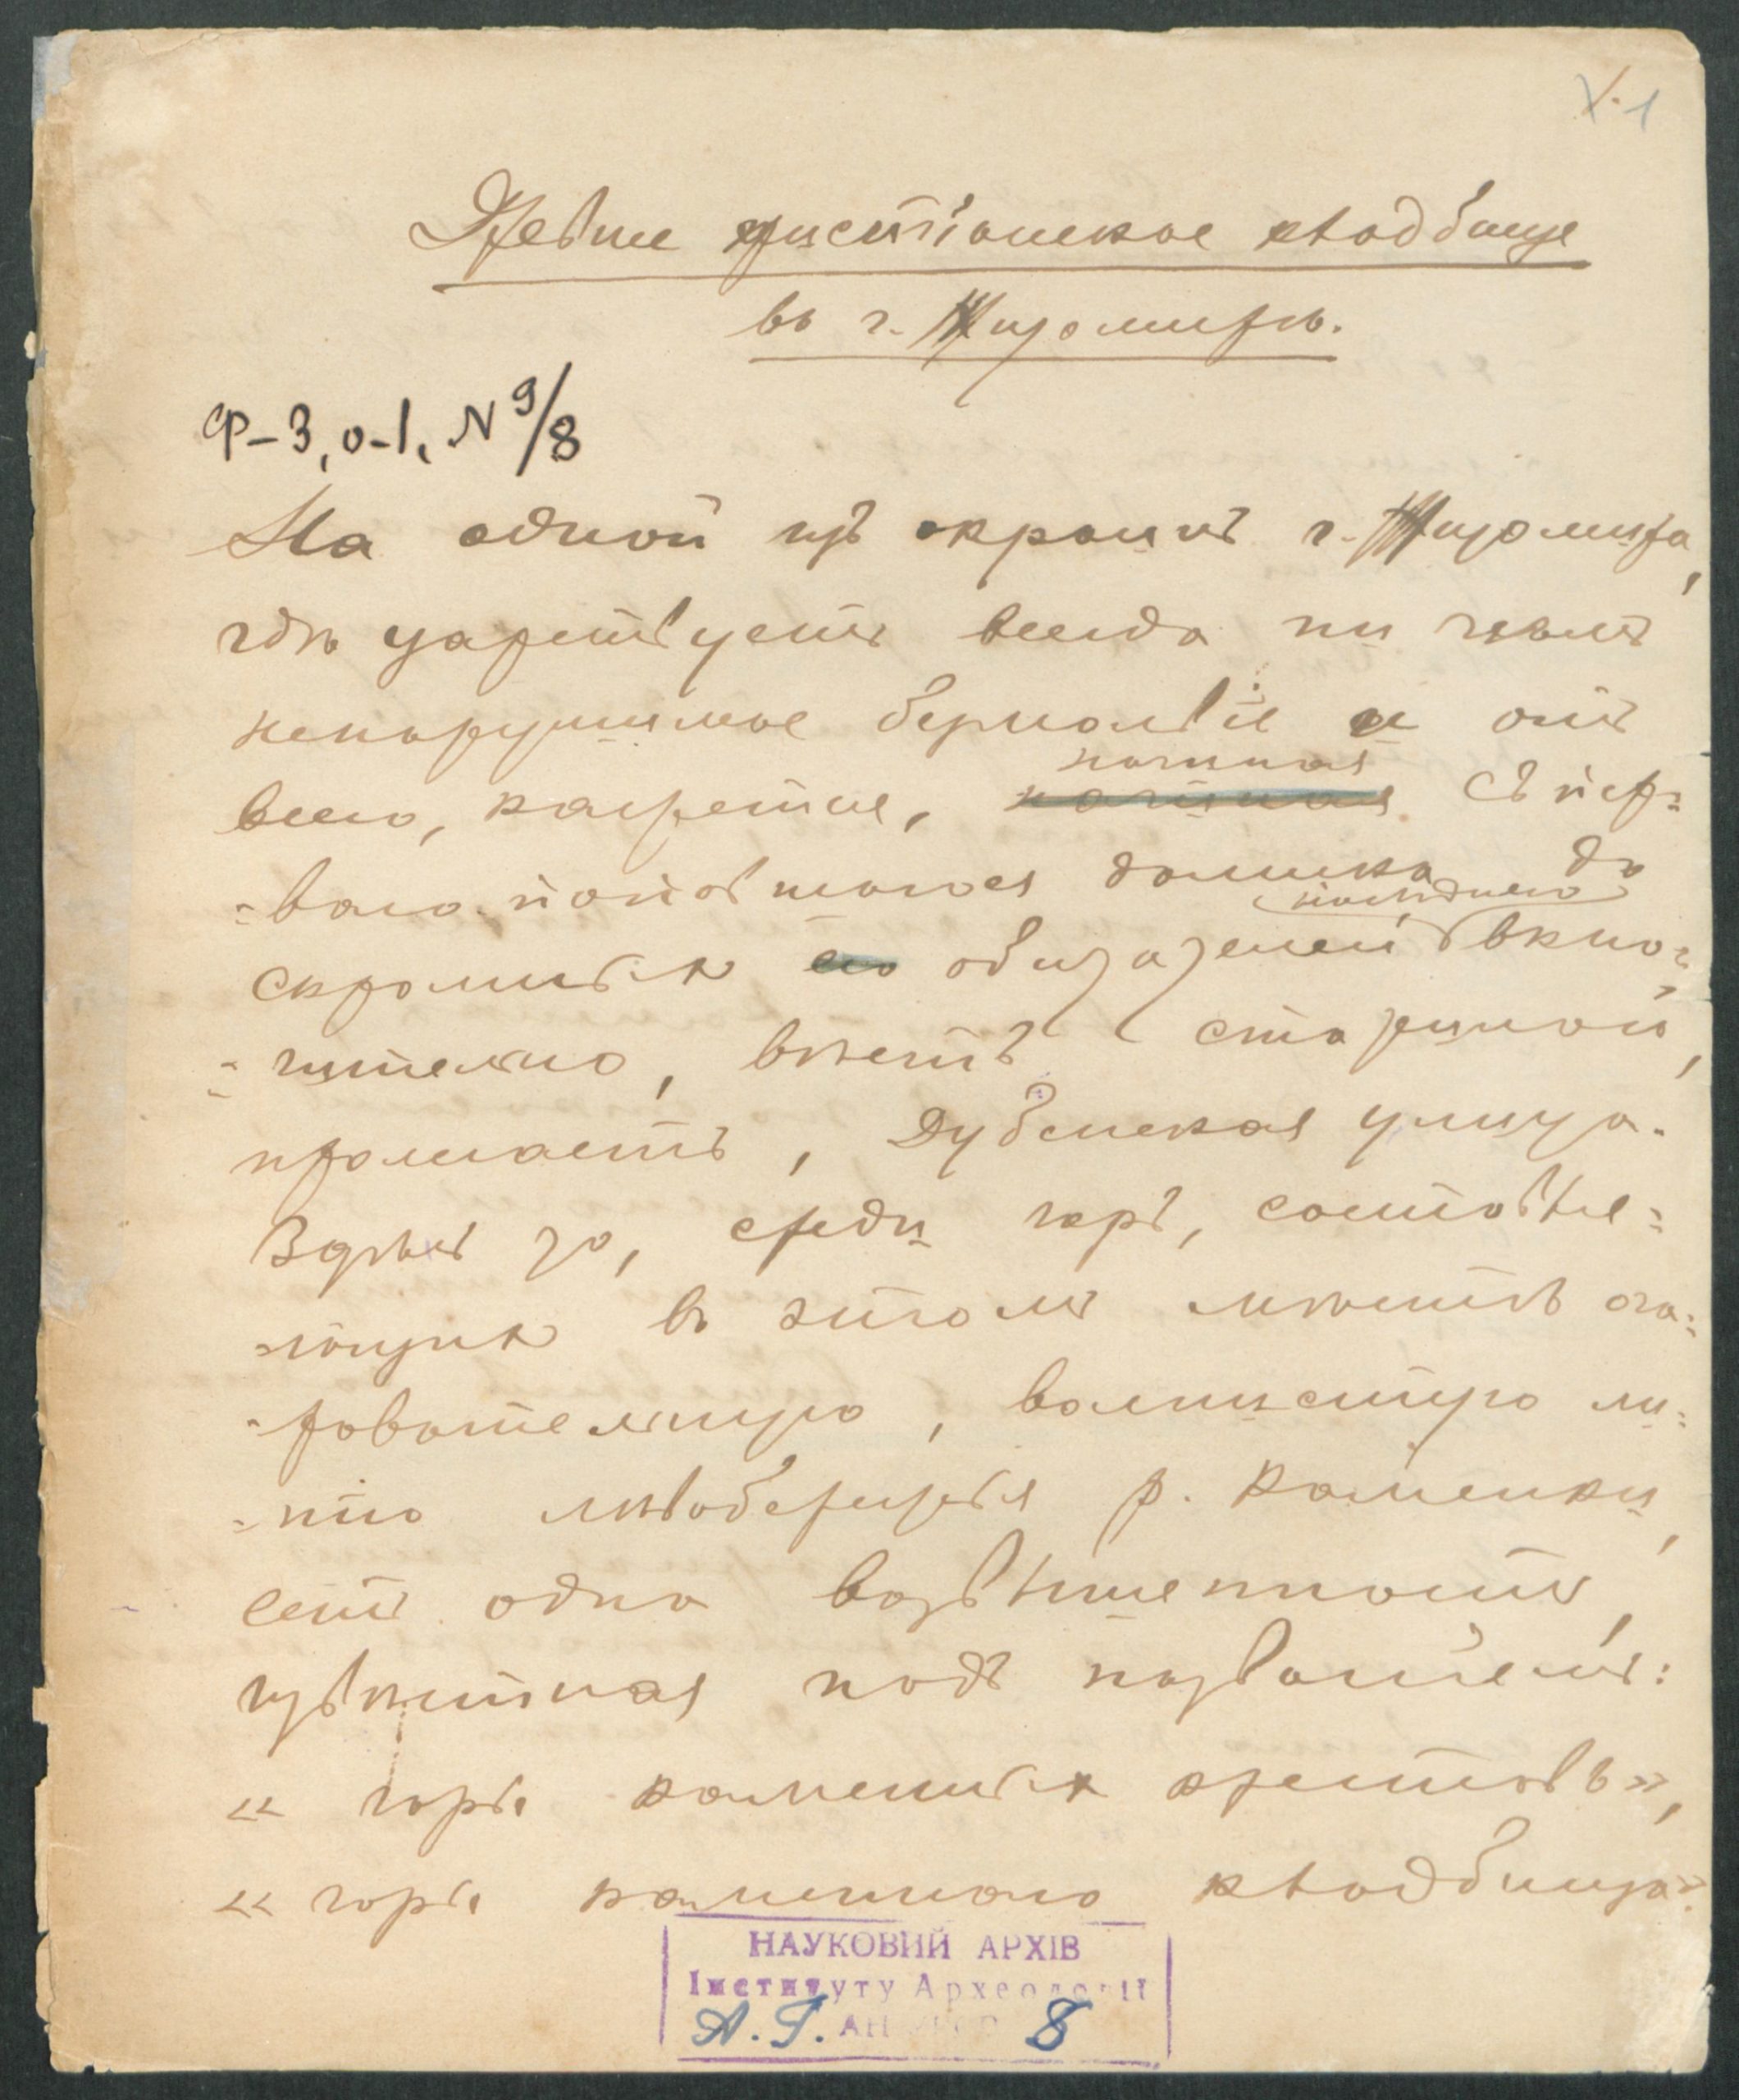 1
Древнее христіанское кладбище
въ г. Житомирѣ.
Ф-3, о-1, N 9/8
На одной изъ окраинъ г. Житомира,
гдѣ царствуетъ всегда ни чѣмъ
ненарушимое безмолвіе и отъ
всего, кажется, начиная
начиная съ пер-
-ваго попавшагося домика до
последнего
скромныхъ его обитателей вклю-
-чительно, вѣетъ стариной,
пролегаетъ, Дубенская улица.
Вдали за, среди горъ, составля-
-ющихъ въ этомъ мѣстѣ оча-
-ровательную, волнистую ли-
-нію лѣвобережья р. Каменки,
есть одна возвышенность,
извѣстная подъ названіемъ:
« горы каменныхъ крестовъ»,
« горы каменнаго кладбища».
НАУКОВИЙ АРХІВ
Інституту Археології
А. Г. АН 8